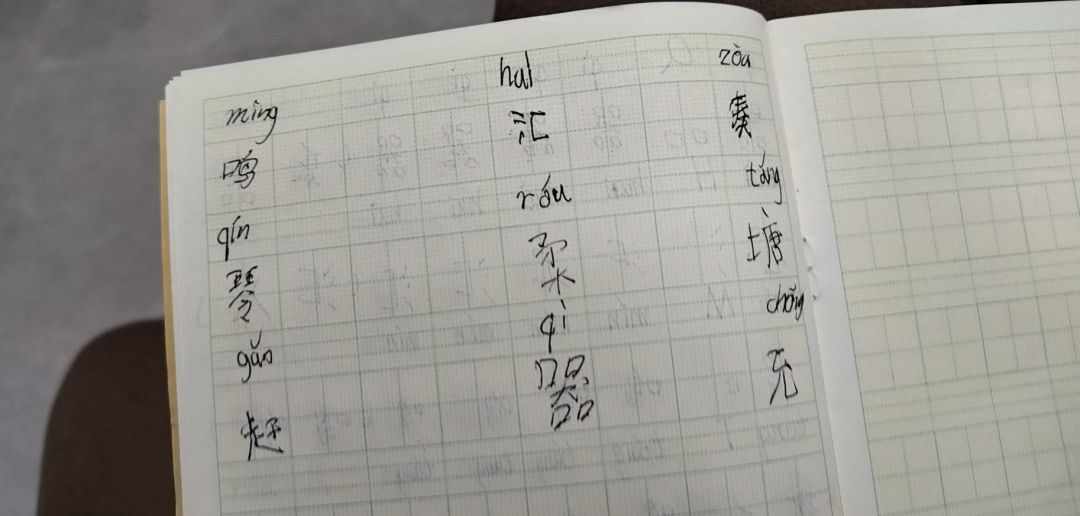 míng hal zòu
鸣 汇 奏
qín róu táng
琴 柔 塘
gǎn qì chōng
赶 器 充